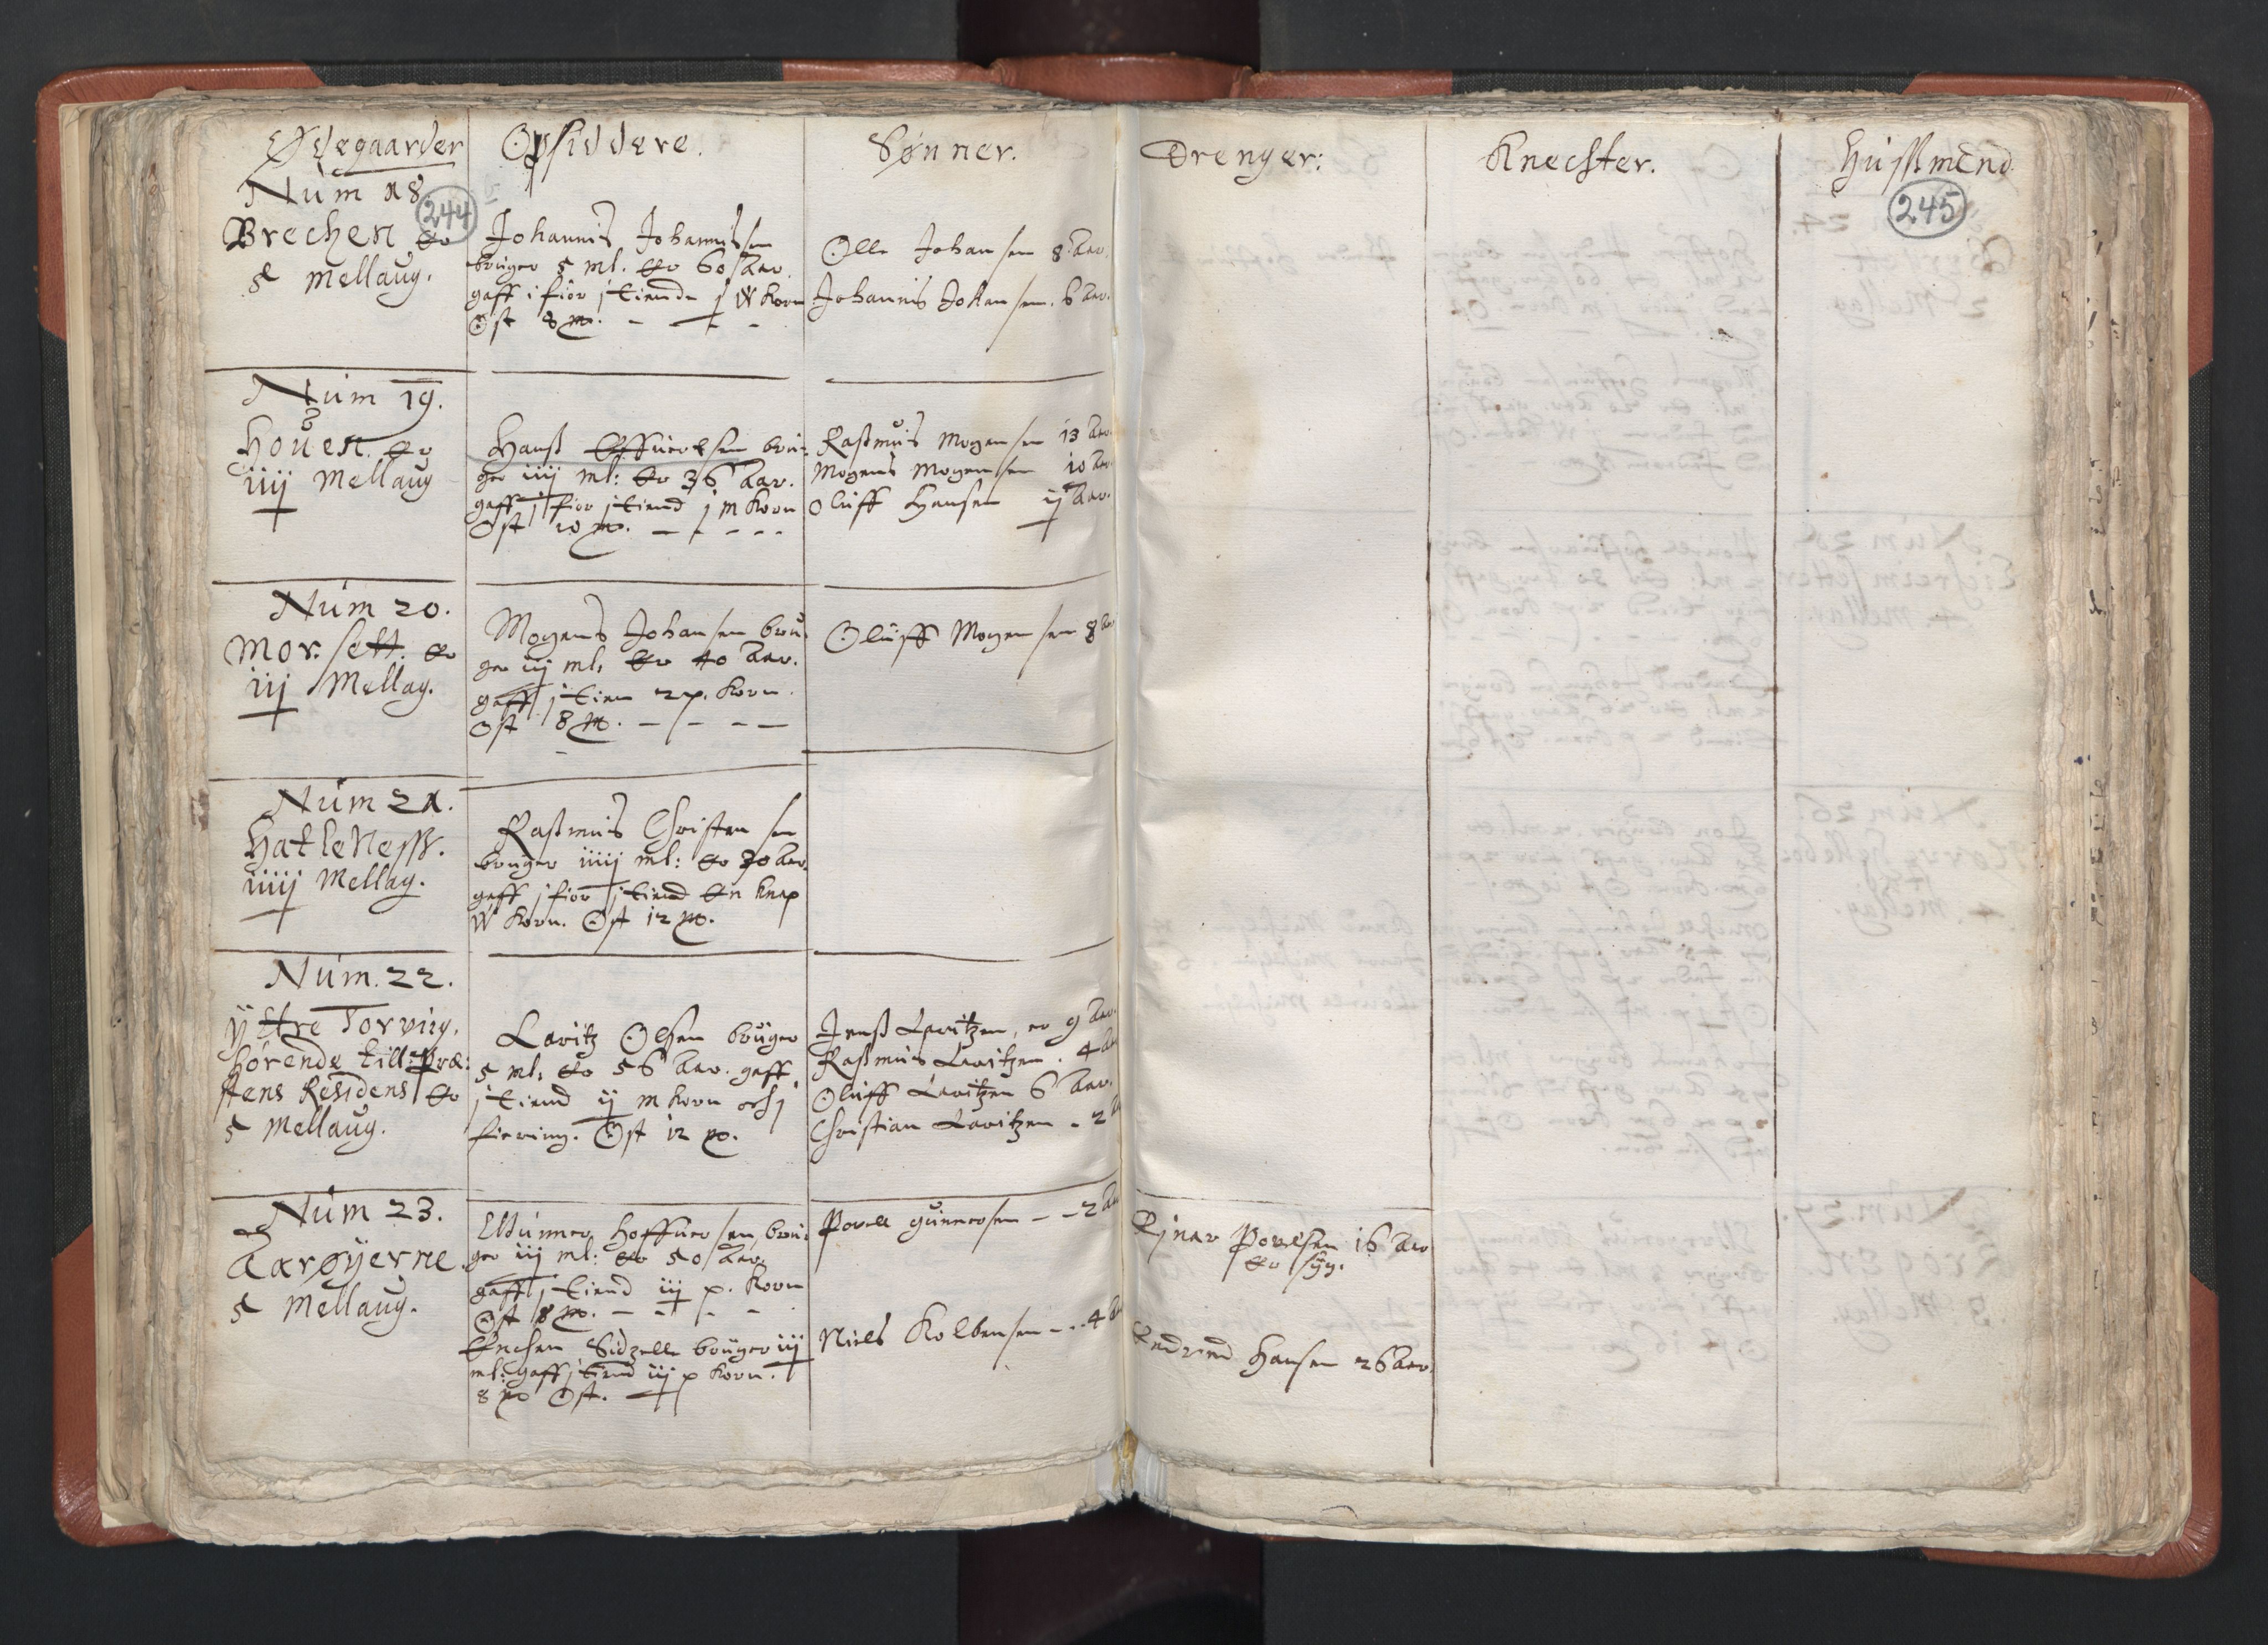 Ødegaarder
Opsiddere.
Sønner.
Drenger:
Knechter.
Hussmend
244
245
Num 18
Brechen er
5 Mellaug.
Johannis Johannissen
bruger 5 ml. er 60 Aar.
gaff i fior j tiende j W Korn
Ost 8
Olle Johansen 8 Aar.
Johannis Johansen. 6 Aar.
Num 19.
Houen. er
iiij Mellaug
Hanß bru:
ger iiij ml: er 36 Aar.
gaff j fior j tiend j m Korn
Ost 10
Raßmus Mogensen 13 Aar.
Mogens Mogensen 10 Aar.
Oluff Hansen ij Aar.
Num 20.
Mor:sett. er
iij Mellag.
Mogens Johansen bru:
ger iij ml: er 40 Aar.
gaff j tien 2 p. Korn.
Ost 8
Oluff Mogensen 8
Num 21.
Hatleness.
iiij Mellag.
Raßmus Christensen
bruger iiij ml: er 30 Aar.
gaff j fior j tiend En knap
W Korn. Ost 12
Num. 22.
Ÿttre Torving.
hörende till Præ:
stens Residens er
5 Mellaug.
Lavritz Olsen bruger
5 ml: er 56 Aar. gaff
j tiend ij m Korn och j
fiering. Ost 12
Jenß Lavritzen, er 9 Aar.
Raßmus Lavritzen. 4
Oluff Lavritzen 6 Aar.
Christian Lavritzen - 2
Num 23.
Aarøÿerne.
5 Mellaug.
Gunner bru:
ger iij ml: er 50 Aar.
gaff j tiend iij p. Korn
Ost 8
Enchen Sidzelle bruger iij
ml: gaff j tiend iij p Korn.
8 Ost.
Povell Gunnersen - - 2
Niels Kolbensen - - 4
Ejnar Povelsen 16 Aar
er syg.
Hansen 26 Aar.